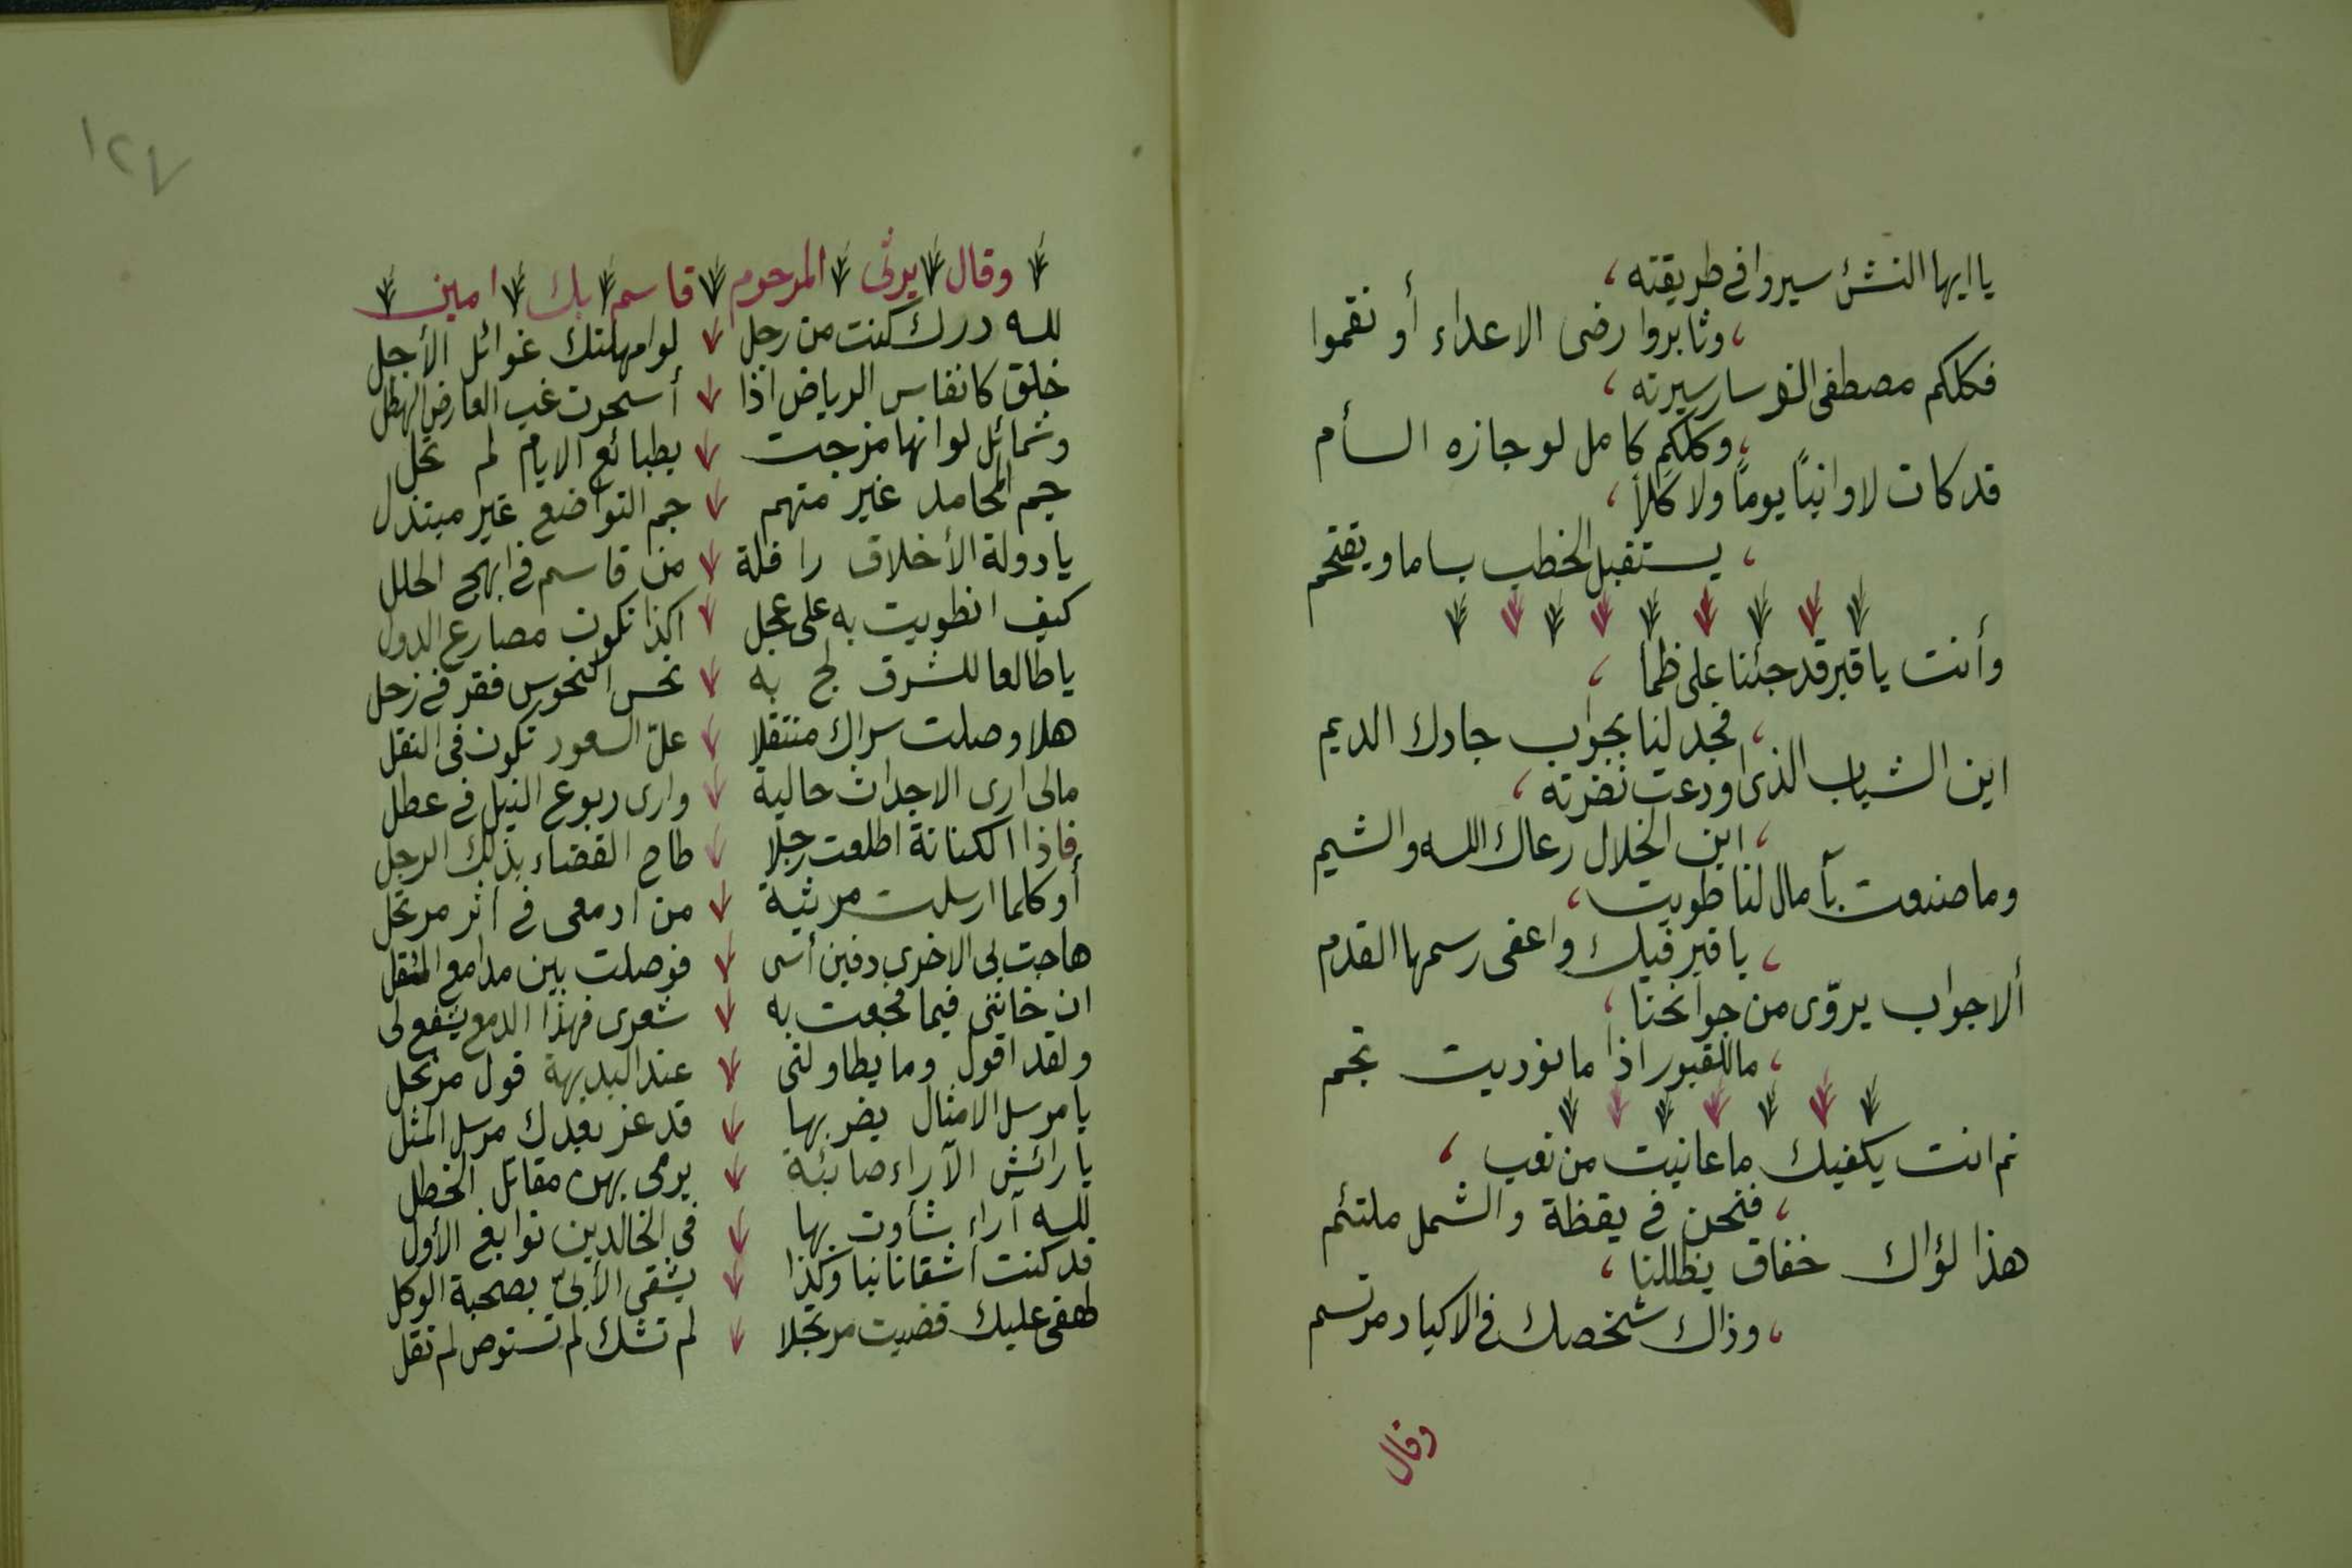 يا ايها النشئ سيروا في طريقته ،
، وثابروا رضى الاعداء أو نقموا
فكلكم مصطفى لو سار سيرته ،
، وكلكم كامل لو جازه السأم
قد كان لا وانيًا يومًا ولا كلاً ،
، يستقبل الخطب بساما ويقتحم
وأنت يا قبر قد جئنا على ظمأ ،
، فجد لنا بجواب جادك الديم
اين الشباب الذى اودعت نضرته ،
، اين الخلال رعاك الله والشيم
وما صنعت بآمال لنا طويت ،
، يا قبر فيك واعفى رسمها القدم
ألا جواب يروّى من جوانحنا ،
، ما للقبور اذا ما نوديت تجم
نم انت يكفيك ما عانيت من تعب ،
، فنحن في يقظة والشمل ملتئم
هذا لؤاك خفاق يظللنا ،
، وذاك شخصك في الاكباد مرتسم
وقال
١٢٧
وقال يرثى المرحوم قاسم بك امين
لله درك كنت من رجل لو امهلتك غوائل الأجل
خلق كانفاس الرياض اذا أسحرت غب العارض الهطل
وشمائل لو انها مزجت بطبائع الايام لم تحل
جم المحامد غير متهم جم التواضع غير مبتذل
يا دولة الأخلاق رافلة من قاسم في ابهج الحلل
كيف انطويت به على عجل اكذا تكون مصارع الدول
يا طالعا للشرق لج به نحس النحوس فقر في زحل
هلا وصلت سراك منتقلا علّ السعود تكون في النقل
مالى ارى الاجداث حالية وارى ربوع النيل في عطل
فاذا الكنانة اطلعت رجلا طاح القضاء بذلك الرجل
أوكلما ارسلت مرثية من ادمعى في اثر مرتحل
هاجت بى الاخرى دفين أسى فوصلت بين مدامع المقل
ان خاننى فيما فجعت به شعرى فهذا الدمع يشفع لى
ولقد اقول وما يطاولنى عند البديهة قول مرتجل
يا مرسل الامثال يضربها قد عز بعدك مرسل المثل
يا رائش الآراء صائبة يرمى بهن مقاتل الخطل
لله آراء شأوت بها في الخالدين نوابغ الأول
قد كنت اشقانا بنا وكذا يشقى الأبىّ بصحبة الوكل
لهفى عليك قضيت مرتجلا لم تشك لم تستوص لم تقل